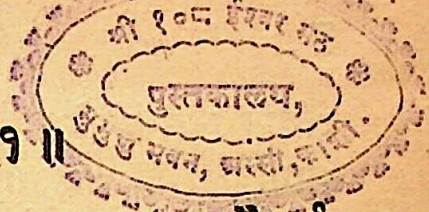 श्री १०८ ईश्वर मठ
पुस्तकालय,
भवन, अस्सी, काशी.
१ ॥